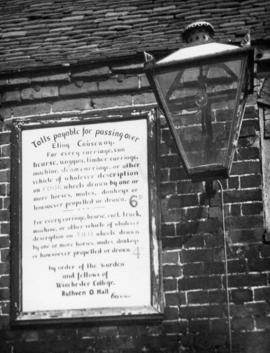 Tolls payable for passing over
Eling Causeway.
For every carriage, van
hearse, waggon, timber carriage,
machine, steam carriage, or other
vehicle of whatsoever description
on FOUR wheels drawn by one or
more horses, mules, donkeys or
howsoever propelled or drawn. 6
For every carriage, hearse, cart, truck,
machine, or other vehicle of whatsoever
description on TWO wheels drawn
by one or more horses, mules, donkeys
or howsoever propelled or drawn. 4
by order of the Warden
and fellows of
Winchester College.
Ruthven O. Hall